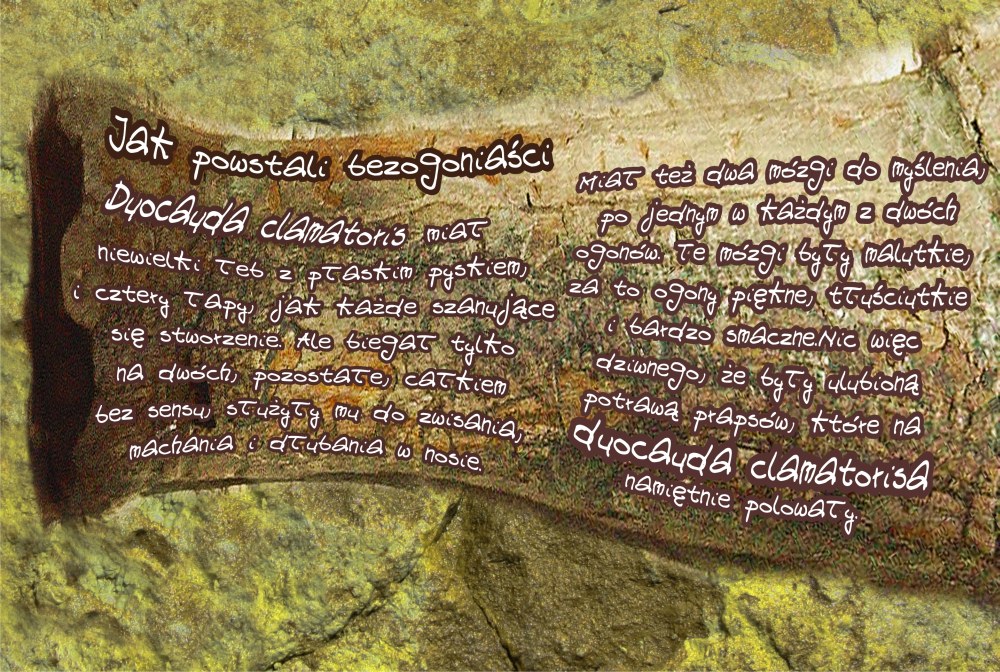 Jak powstali bezogoniaści
Duocauda clamatoris miał
niewielki łeb z płaskim pyskiem,
i cztery łapy, jak każde szanujące
się stworzenie. Ale biegał tylko
na dwóch, pozostałe, całkiem
bez sensu, służyły mu do zwisania,
machania i dłubania w nosie.
Miał też dwa mózgi do myślenia,
po jednym w każdym z dwóch
ogonów. Te mózgi były malutkie,
za to ogony piękne, tłuściutkie
i bardzo smaczne.Nic więc
dziwnego, że były ulubioną
potrawą prapsów, które na
duocauda clamatorisa
namiętnie polowały.